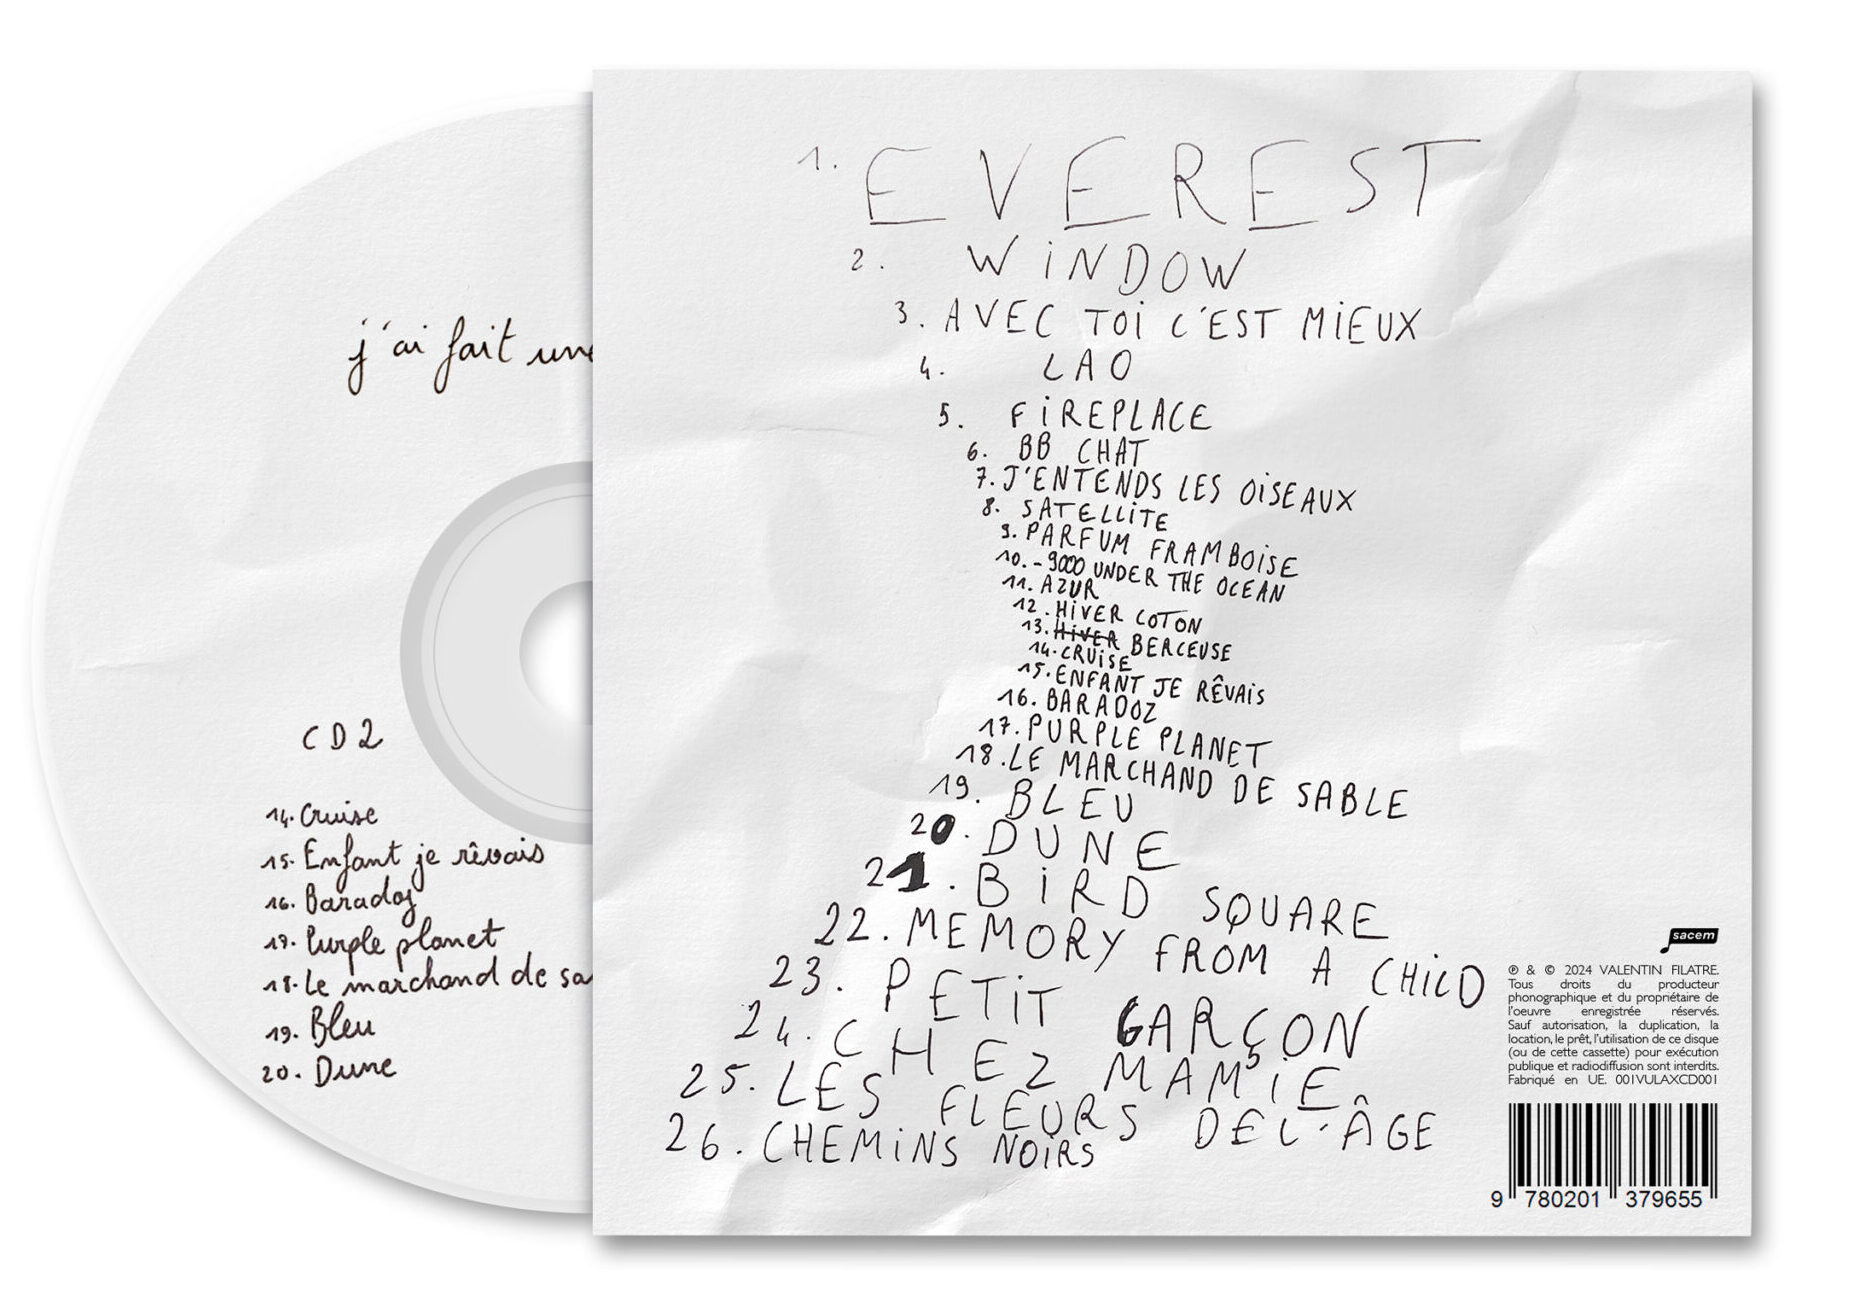 j'ai fait une
CD2
14. Cruise
15. Enfant je rêvais
16. Baradoz
17. Purple planet
18. Le marchand de sa
19. Bleu
20. Dune
1. EVEREST
2. WiNDOW
3. AVEC TOi C'EST MiEUX
4. LAO
5. FiREPLACE
6. BB CHAT
7. J'ENTENDS LES OiSEAUX
8. SATELLiTE
9. PARFUM FRAMBOiSE
10. -9000 UNDER THE OCEAN
11. AZUR
12. HiVER COTON
13. HiVER BERCEUSE
14. CRUiSE
15. ENFANT JE RÊVAiS
16. BARADOZ
17. PURPLE PLANET
18. LE MARCHAND DE SABLE
19. BLEU
20. DUNE
21. BiRD SQUARE
22. MEMORY FROM A CHiLD
23. PETiT GARÇON
24. CHEZ MAMiE
25. LES FLEURS DE L'ÂGE
26. CHEMiNS NOiRS
sacem
℗ & © 2024 VALENTIN FILATRE.
Tous droits du producteur
phonographique et du propriétaire de
l'oeuvre enregistrée réservés.
Sauf autorisation, la duplication, la
location, le prêt, l'utilisation de ce disque
(ou de cette cassette) pour exécution
publique et radiodiffusion sont interdits.
Fabriqué en UE. 001VULAXCD001
9 780201 379655